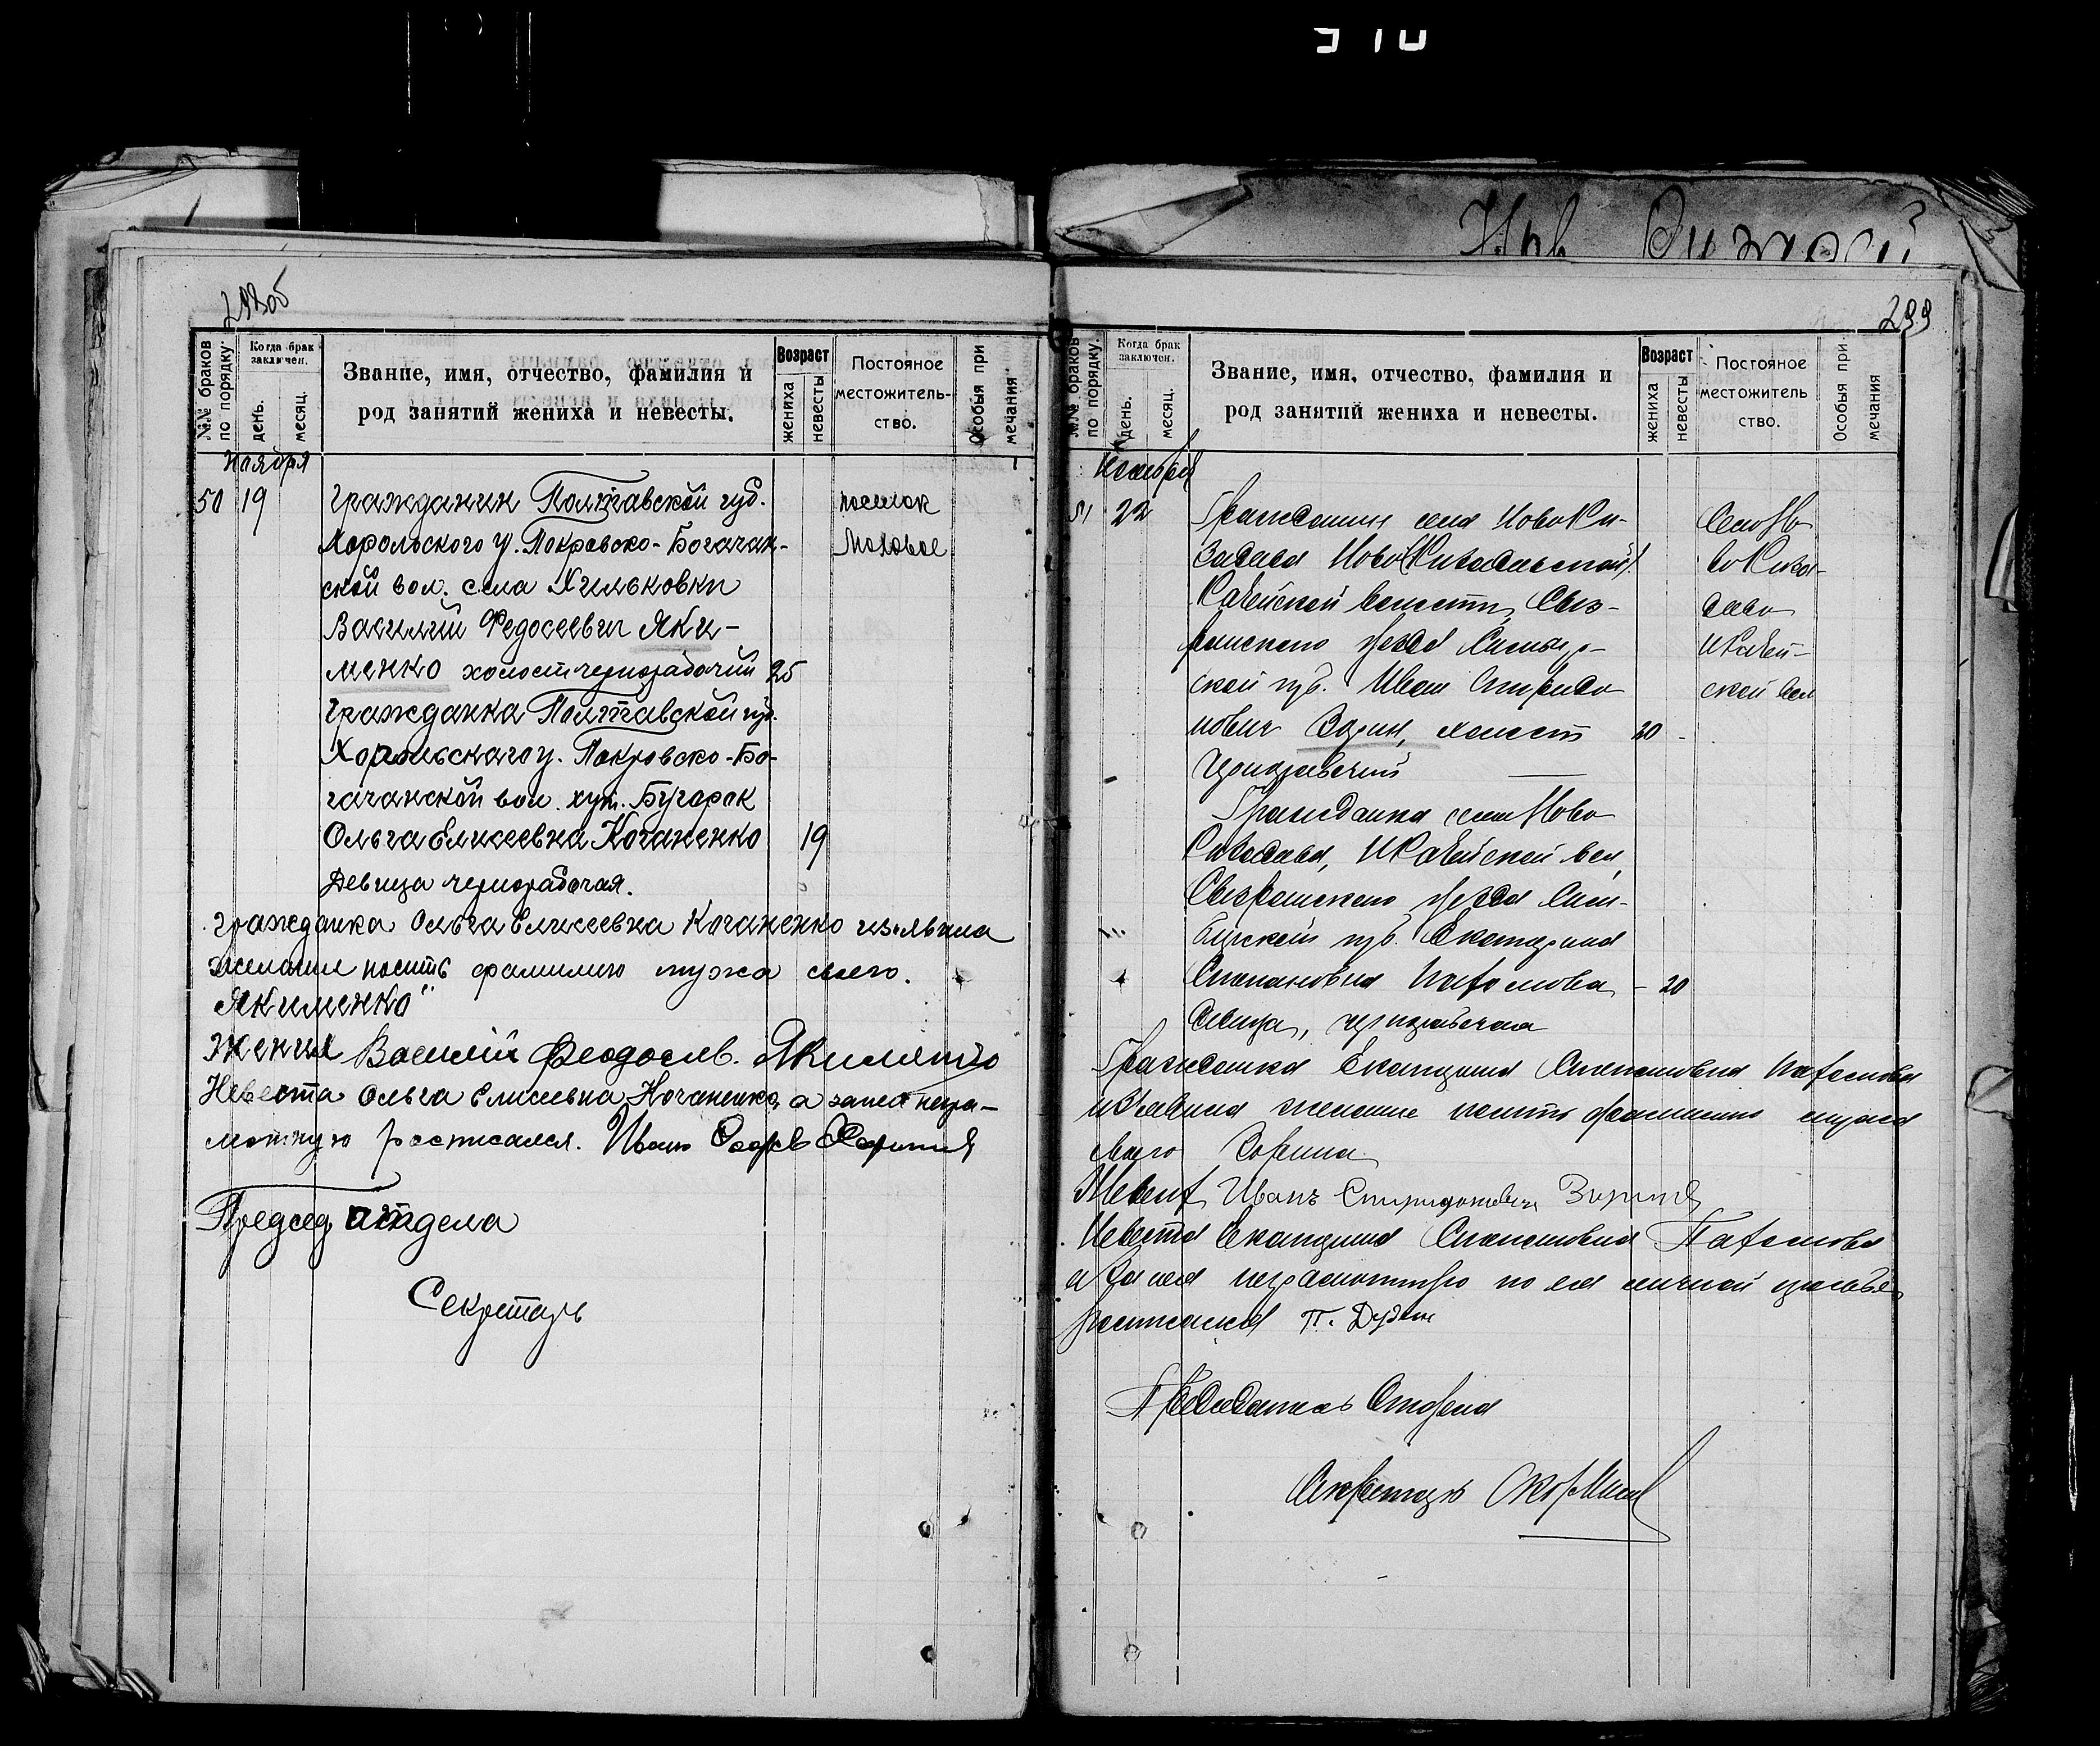 293об
№№ браков по порядку.
Когда брак заключен.
день.
месяц.
Звание, имя, отчество, фамилия и
род занятий жениха и невесты.
Возраст
жениха
невесты
Постоянное
местожитель-
ство.
Особыя при
мечания
Ноября
50 19 Гражданин Полтавской губ. поселок
Хорольского у. Покровско-Богачан- Моховое
ской вол. села Хильковки
Василий Федосеевич Яки-
менко холост чернорабочий 25
Гражданка Полтавской губ.
Хорольскаго у. Покровско-Бо-
гачанской вол. хут. Бугорок
Ольга Елисеевна Коганенко 19
Девица чернорабочая.
Гражданка Ольга Елисеевна Коганенко изъявила
желание носить фамилию мужа своего.
Якименко"
Жених Василий Феодосиев. Якименко
Невеста Ольга Елисеевна Коганенко, а за нея негра-
мотную росписался. Иван
Председ отдела
Секретарь
299
№№ браков по порядку.
Когда брак заключен.
день.
месяц.
Звание, имя, отчество, фамилия и
род занятий жениха и невесты.
Возраст
жениха
невесты
Постоянное
местожитель
ство.
Особыя при
мечания
Ноября
51 22 Гражданин села Ново
Ново
волости, Сыз-
ранского уезда Симбир-
ской губ. Иван Спиридо ской вол
нович Зорин, холост 20
Чернорабочий
Гражданка села Ново
вол,
Сызранского уезда Сим-
бирской губ. Екатерина
Степановна 20
девица, чернорабочая
Гражданка Екатерина Степановна
изъявила желание носить фамилию мужа
своего Зорина
Жених Иванъ Спиридонович Зорин
Невеста Екатерина Степановна
а за нея неграмотную по ея личной просьбе
росписался П.
Председатель Отдела
Секретарь